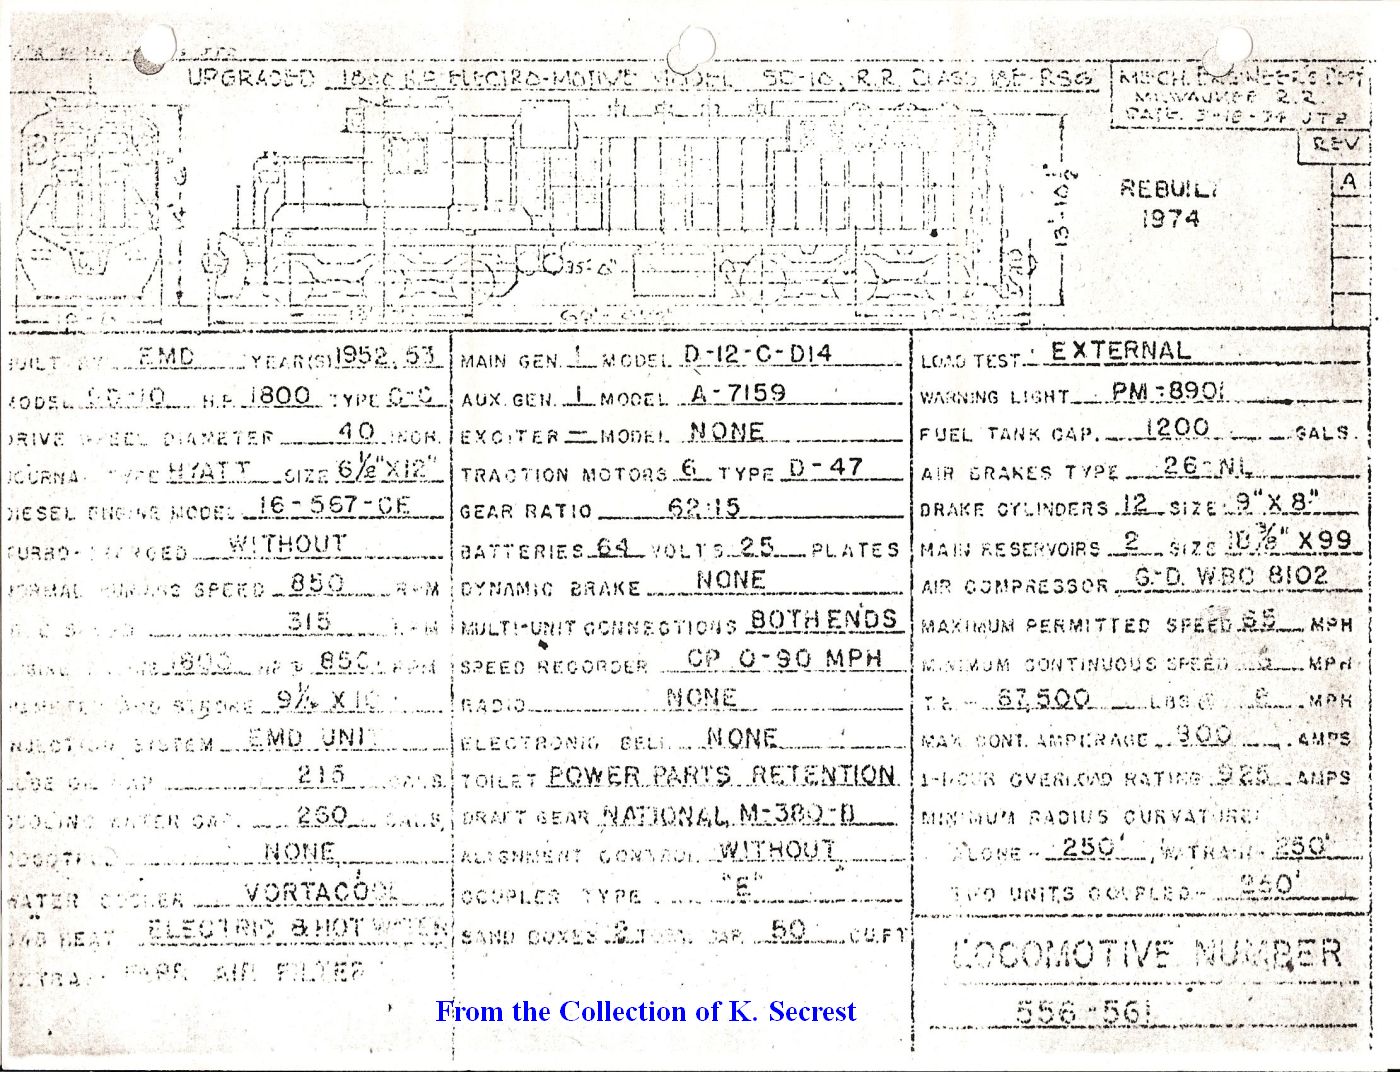 UPGRADED 1800 H.P. ELECTRO-MOTIVE MODEL SD-10, R.R. CLASS 18E-RSG
MECH. ENGINEER'S DEPT
MILWAUKEE R.R.
DATE. 3-18-74 JTB
REV.
A
REBUILT
1974
13'-10½"
35'-0"
BUILT BY EMD YEAR(S) 1952, 53
MODEL SD-10 H.P. 1800 TYPE C-C
DRIVE WHEEL DIAMETER 40 INCH.
JOURNAL TYPE HYATT SIZE 6½"X12"
DIESEL ENGINE MODEL 16-567-CE
TURBO-CHARGED WITHOUT
NORMAL RUNNING SPEED 850 RPM
IDLE SPEED 315 RPM
1800 850 RPM
DIAMETER AND STROKE X 10
INJECTION SYSTEM EMD UNIT
LUBE OIL CAP. 215 GALS.
COOLING WATER CAP. 260 GALS.
NONE
WATER COOLER VORTACOOL
CAB HEAT ELECTRIC & HOT WATER
EXTRA- FARR AIR FILTER
MAIN GEN. 1 MODEL D-12-C-D14
AUX. GEN. 1 MODEL A-7159
EXCITER - MODEL NONE
TRACTION MOTORS 6 TYPE D-47
GEAR RATIO 62:15
BATTERIES 64 VOLTS 25 PLATES
DYNAMIC BRAKE NONE
MULTI-UNIT CONNECTIONS BOTH ENDS
SPEED RECORDER CP 0-90 MPH
RADIO NONE
ELECTRONIC BELL NONE
TOILET POWER PARTS RETENTION
DRAFT GEAR NATIONAL M-380-B
ALIGNMENT CONTROL WITHOUT
COUPLER TYPE "E"
SAND BOXES 8 TOTAL CAP. 50 CU.FT
LOAD TEST EXTERNAL
WARNING LIGHT PM-8901
FUEL TANK CAP. 1200 GALS.
AIR BRAKES TYPE 26-NL
BRAKE CYLINDERS 12 SIZE 9" X 8"
MAIN RESERVOIRS 2 SIZE X 99
AIR COMPRESSOR G-D. WBO 8102
MAXIMUM PERMITTED SPEED 65 MPH
MINIMUM CONTINUOUS SPEED MPH
T.E. - 67,500 LBS @ MPH
MAX CONT. AMPERAGE 900 AMPS
1-HOUR OVERLOAD RATING 925 AMPS
MINIMUM RADIUS CURVATURE:
ALONE- 250', W/TRAIN- 250'
TWO UNITS COUPLED- 250'
LOCOMOTIVE NUMBER
556-561
From the Collection of K. Secrest